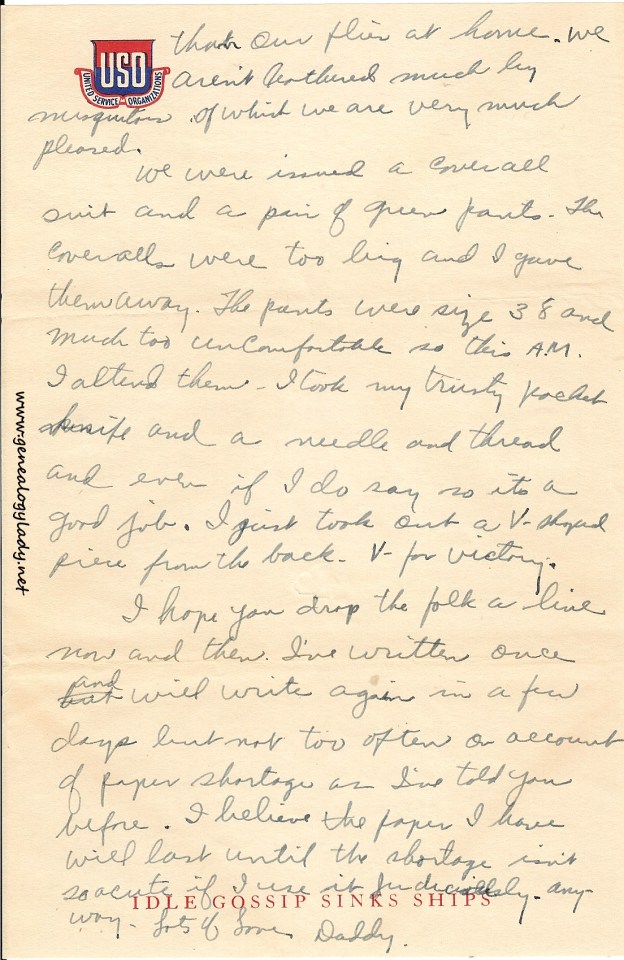 USO
UNITED SERVICE ORGANIZATIONS
than our flies at home. We
aren't bothered much by
mesquitos of which we are very much
pleased.
We were issued a coverall
suit and a pair of green pants. The
coveralls were too big and I gave
them away. The pants were size 38 and
much too uncomfortable so this A.M.
I altered them. I took my trusty pocket
knife and a needle and thread
and even if I do say so its a
good job. I just took out a V-shaped
piece from the back. V- for victory.
I hope you drop the folk a line
now and then. I've written once
and
but will write again in a few
days but not too often on account
of paper shortage as I've told you
before. I believe the paper I have
will last until the shortage isn't
so acute if I use it judiciously. any-
IDLE GOSSIP SINKS SHIPS
way. Lots of Love Daddy.
www.genealogylady.net